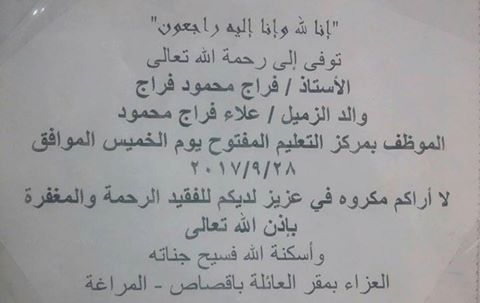 "إنا لله وإنا إليه راجعون"
توفى إلى رحمة الله تعالى
الأستاذ / فراج محمود فراج
والد الزميل / علاء فراج محمود
الموظف بمركز التعليم المفتوح يوم الخميس الموافق
٢٠١٧/٩/٢٨
لا أراكم مكروه في عزيز لديكم للفقيد الرحمة والمغفرة
بإذن الله تعالى
وأسكنة الله فسيح جناته
العزاء بمقر العائلة باقصاص - المراغة